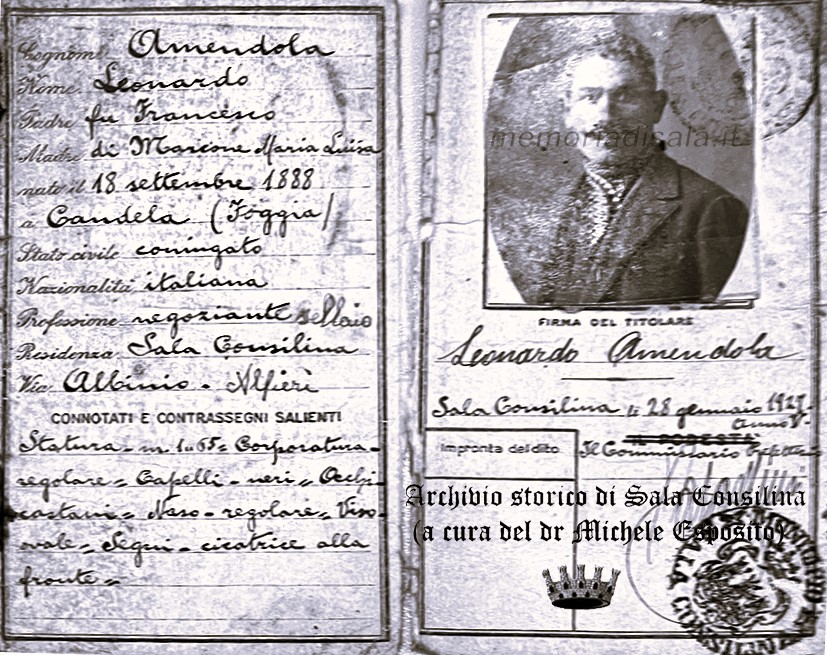 Cognome Amendola
Nome Leonardo
Padre fu Francesco
Madre di Marcone Maria Luisa
nato il 18 settembre 1888
a Candela (Foggia)
Stato civile coniugato
Nazionalità italiana
Professione negoziante sellaio
Residenza Sala Consilina
Via Albinio - Alfieri
CONNOTATI E CONTRASSEGNI SALIENTI
Statura - m. 1.65 = Corporatura -
regolare = Capelli - neri = Occhi -
castani = Naso - regolare = Viso -
ovale = Segni - cicatrice alla
fronte =
memoriadisala.it
FIRMA DEL TITOLARE
Leonardo Amendola
Sala Consilina li 28 gennaio 1927
anno V.
IL PODESTÀ
Impronta del dito
Il Commissario Prefettizio
Archivio storico di Sala Consilina
(a cura del dr Michele Esposito)
SALA CONSILINA